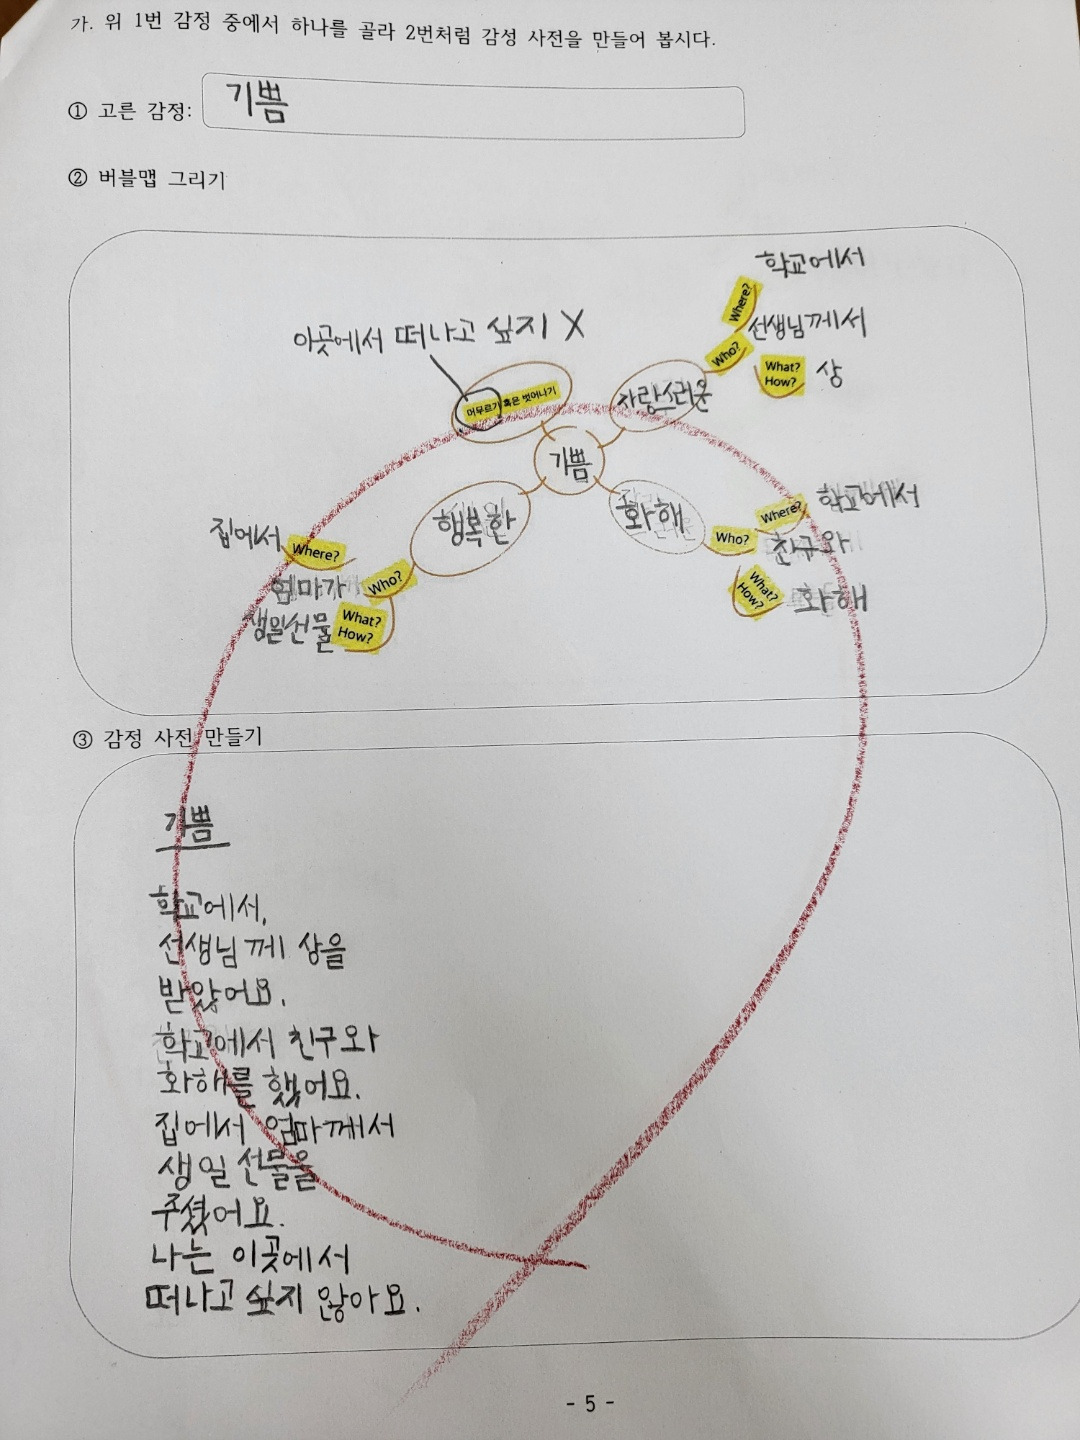 가. 위 1번 감정 중에서 하나를 골라 2번처럼 감성 사전을 만들어 봅시다.
① 고른 감정:
기쁨
② 버블맵 그리기
학교에서
Where?
이곳에서 떠나고 싶지 X
선생님께서
Who?
What?
How?
상
머무르기 혹은 벗어나기
자랑스러운
기쁨
행복한
화해
Where?
학교에서
Who?
친구와
What?
How?
화해
집에서
Where?
엄마가
Who?
생일선물
What?
How?
③ 감정 사전 만들기
기쁨
학교에서,
선생님께 상을
받았어요.
학교에서 친구와
화해를 했어요.
집에서 엄마께서
생일 선물을
주셨어요.
나는 이곳에서
떠나고 싶지 않아요.
- 5 -